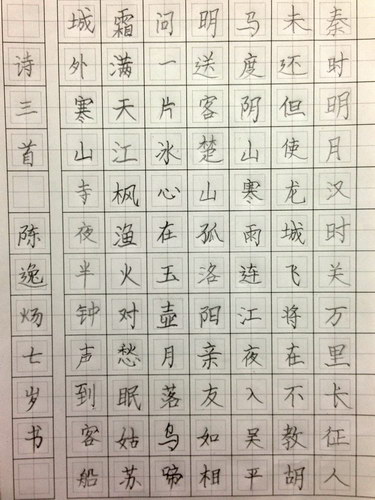 秦时明月汉时关万里长征人
未还但使龙城飞将在不教胡
马度阴山寒雨连江夜入吴平
明送客楚山孤洛阳亲友如相
问一片冰心在玉壶月落乌蹄
霜满天江枫渔火对愁眠姑苏
城外寒山寺夜半钟声到客船
诗三首 陈逸炀七岁书